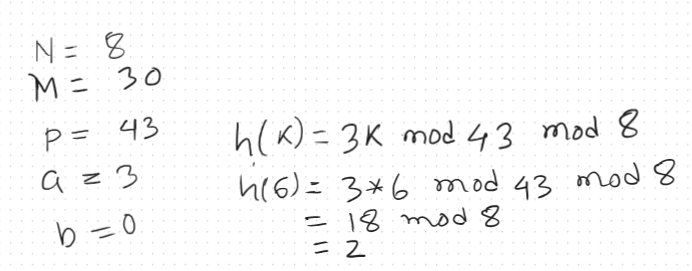 N = 8
M = 30
p = 43
a = 3
b = 0
h(K) = 3K mod 43 mod 8
h(6) = 3*6 mod 43 mod 8
= 18 mod 8
= 2